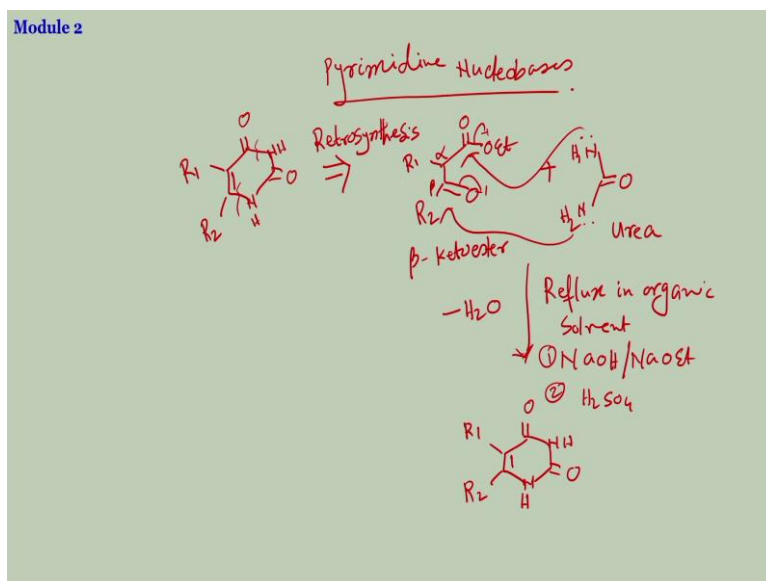 Module 2
Pyrimidine Nucleobases
O
NH
R1
O
R2
N
H
Retrosynthesis
⇒
O
R1
α
OEt
β
O
R2
β-ketoester
+
H2N
O
H2N
Urea
-H2O
Reflux in organic
Solvent
① NaOH/NaOEt
② H2SO4
O
R1
NH
O
R2
N
H